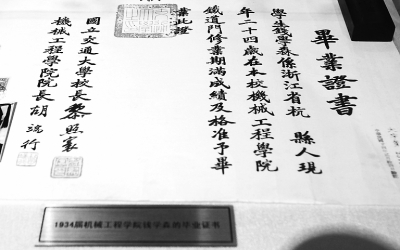 畢業證書
學生錢學森係浙江省杭縣人現
年二十四歲在本校機械工程學院
鐵道門修業期滿成績及格准予畢
業此證
國立交通大學校長黎照寰
機械工程學院院長胡端行
1934届机械工程学院钱学森的毕业证书